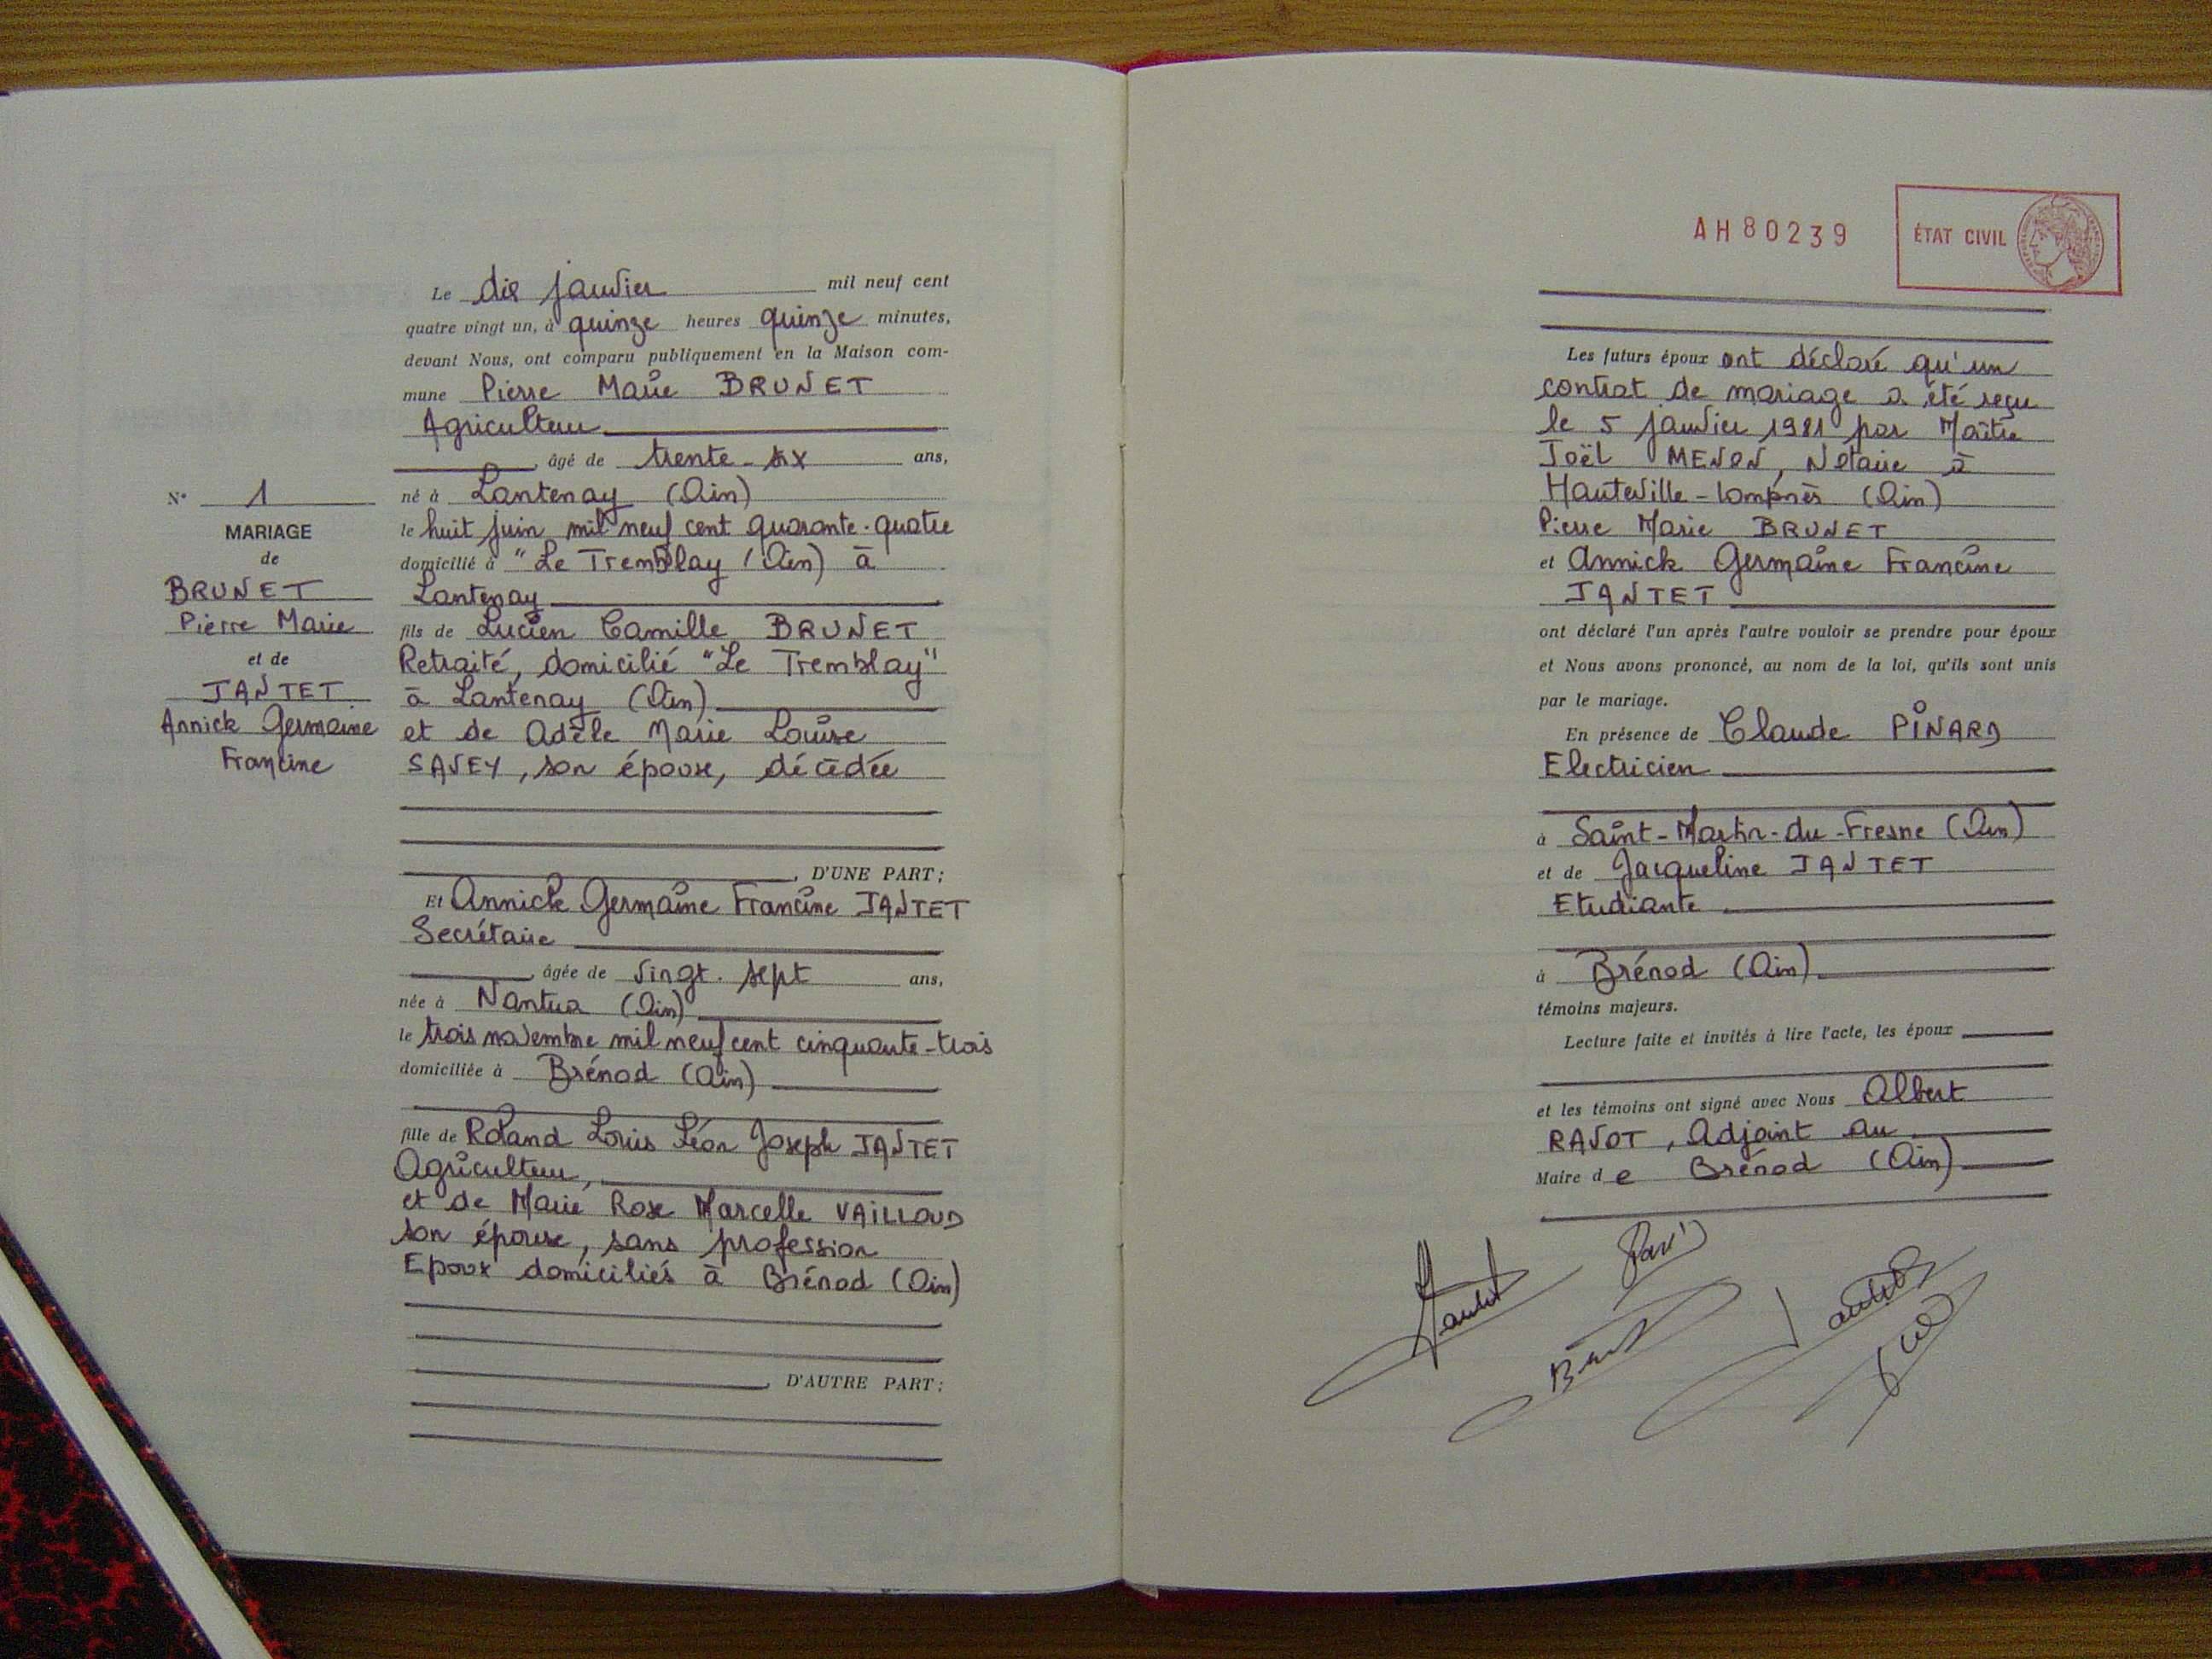 N° 1
MARIAGE
de
BRUNET
Pierre Marie
et de
JANTET
Annick Germaine
Francine
Le dix janvier mil neuf cent
quatre vingt un, à quinze heures quinze minutes,
devant Nous, ont comparu publiquement en la Maison com-
mune Pierre Marie BRUNET
Agriculteur
, âgé de trente-six ans,
né à Lantenay (Ain)
le huit juin mil neuf cent quarante-quatre
domicilié à "Le Tremblay (Ain) à
Lantenay
fils de Lucien Camille BRUNET
Retraité, domicilié "Le Tremblay"
à Lantenay (Ain)
et de Adèle Marie Louise
SAVEY, son épouse, décédée
, D'UNE PART ;
Et Annick Germaine Francine JANTET
Secrétaire
, âgée de vingt-sept ans,
née à Nantua (Ain)
le trois novembre mil neuf cent cinquante-trois
domiciliée à Brénod (Ain)
fille de Roland Louis Léon Joseph JANTET
Agriculteur,
et de Marie Rose Marcelle VAILLOUD
son épouse, sans profession
Epoux domiciliés à Brénod (Ain)
, D'AUTRE PART ;
AH80239
ÉTAT CIVIL
Les futurs époux ont déclaré qu'un
contrat de mariage a été reçu
le 5 janvier 1981 par Maître
Joël MENON, Notaire à
Hauteville-Lompnès (Ain)
Pierre Marie BRUNET
et Annick Germaine Francine
JANTET
ont déclaré l'un après l'autre vouloir se prendre pour époux
et Nous avons prononcé, au nom de la loi, qu'ils sont unis
par le mariage.
En présence de Claude PINARD
Electricien
à Saint-Martin-du-Fresne (Ain)
et de Jacqueline JANTET
Etudiante
à Brénod (Ain)
témoins majeurs.
Lecture faite et invités à lire l'acte, les époux
et les témoins ont signé avec Nous Albert
RAVOT, Adjoint au
Maire de Brénod (Ain)